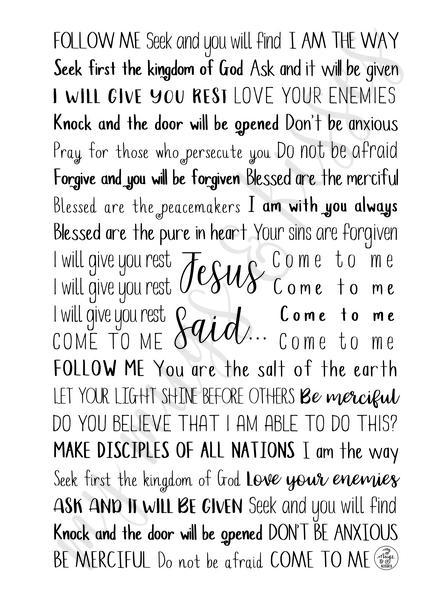 FOLLOW ME Seek and you will find I AM THE WAY
Seek first the kingdom of God Ask and it will be given
I WILL GIVE YOU REST LOVE YOUR ENEMIES
Knock and the door will be opened Don't be anxious
Pray for those who persecute you Do not be afraid
Forgive and you will be forgiven Blessed are the merciful
Blessed are the peacemakers I am with you always
Blessed are the pure in heart Your sins are forgiven
I will give you rest Come to me
I will give you rest Jesus Come to me
I will give you rest Come to me
COME TO ME Said... Come to me
FOLLOW ME You are the salt of the earth
LET YOUR LIGHT SHINE BEFORE OTHERS Be merciful
DO YOU BELIEVE THAT I AM ABLE TO DO THIS?
MAKE DISCIPLES OF ALL NATIONS I am the way
Seek first the kingdom of God Love your enemies
ASK AND IT WILL BE GIVEN Seek and you will find
Knock and the door will be opened DON'T BE ANXIOUS
BE MERCIFUL Do not be afraid COME TO ME